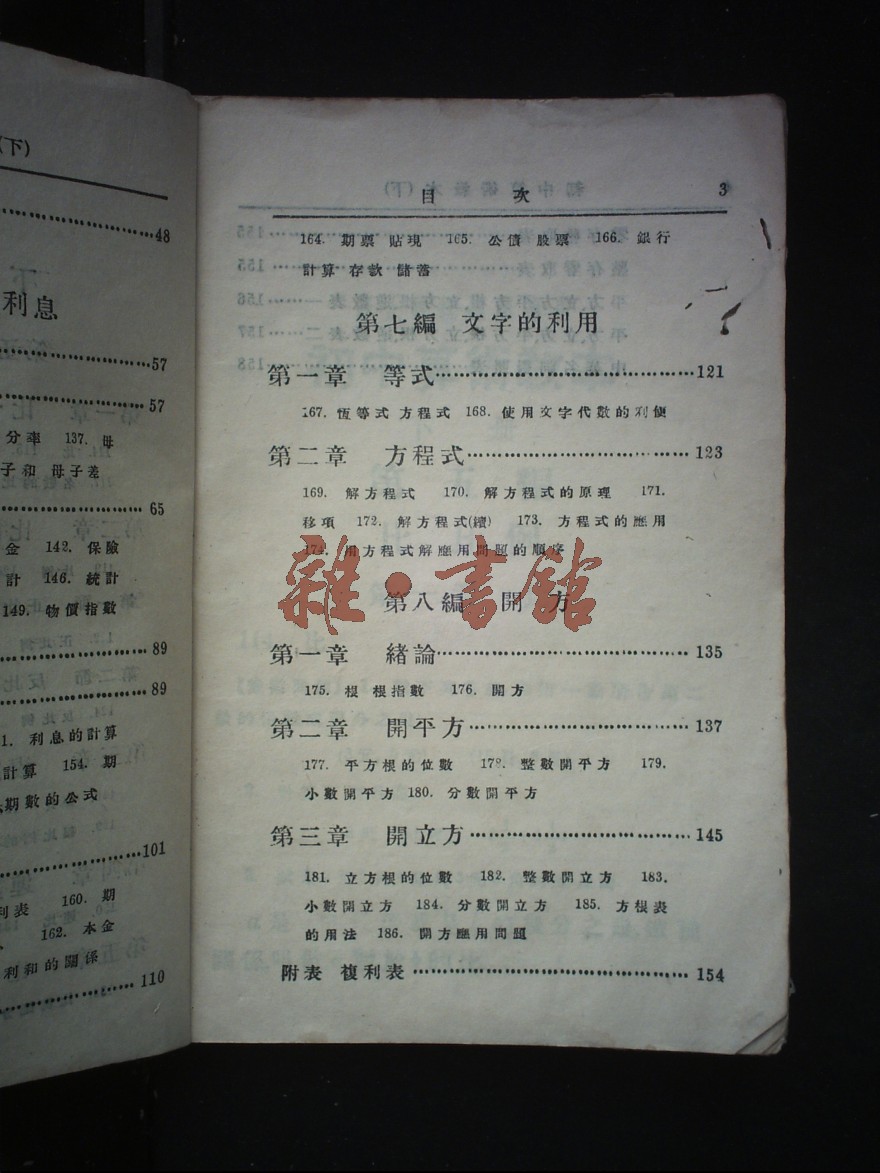 (下)
48
利息
57
57
分率 137. 母
子和 母子差
65
金 142. 保險
計 146. 統計
149. 物價指數
89
89
1. 利息的計算
計算 154. 期
期數的公式
101
利表 160. 期
162. 本金
利和的關係
110
目 次 3
164. 期票 貼現 165. 公債 股票 166. 銀行
計算 存款 儲蓄
第七編 文字的利用
第一章 等式……121
167. 恆等式 方程式 168. 使用文字代數的利便
第二章 方程式……123
169. 解方程式 170. 解方程式的原理 171.
移項 172. 解方程式(續) 173. 方程式的應用
174. 用方程式解應用問題的順序
雜·書館
第八編 開 方
第一章 緒論……135
175. 根 根指數 176. 開方
第二章 開平方……137
177. 平方根的位數 178. 整數開平方 179.
小數開平方 180. 分數開平方
第三章 開立方……145
181. 立方根的位數 182. 整數開立方 183.
小數開立方 184. 分數開立方 185. 方根表
的用法 186. 開方應用問題
附表 複利表……154